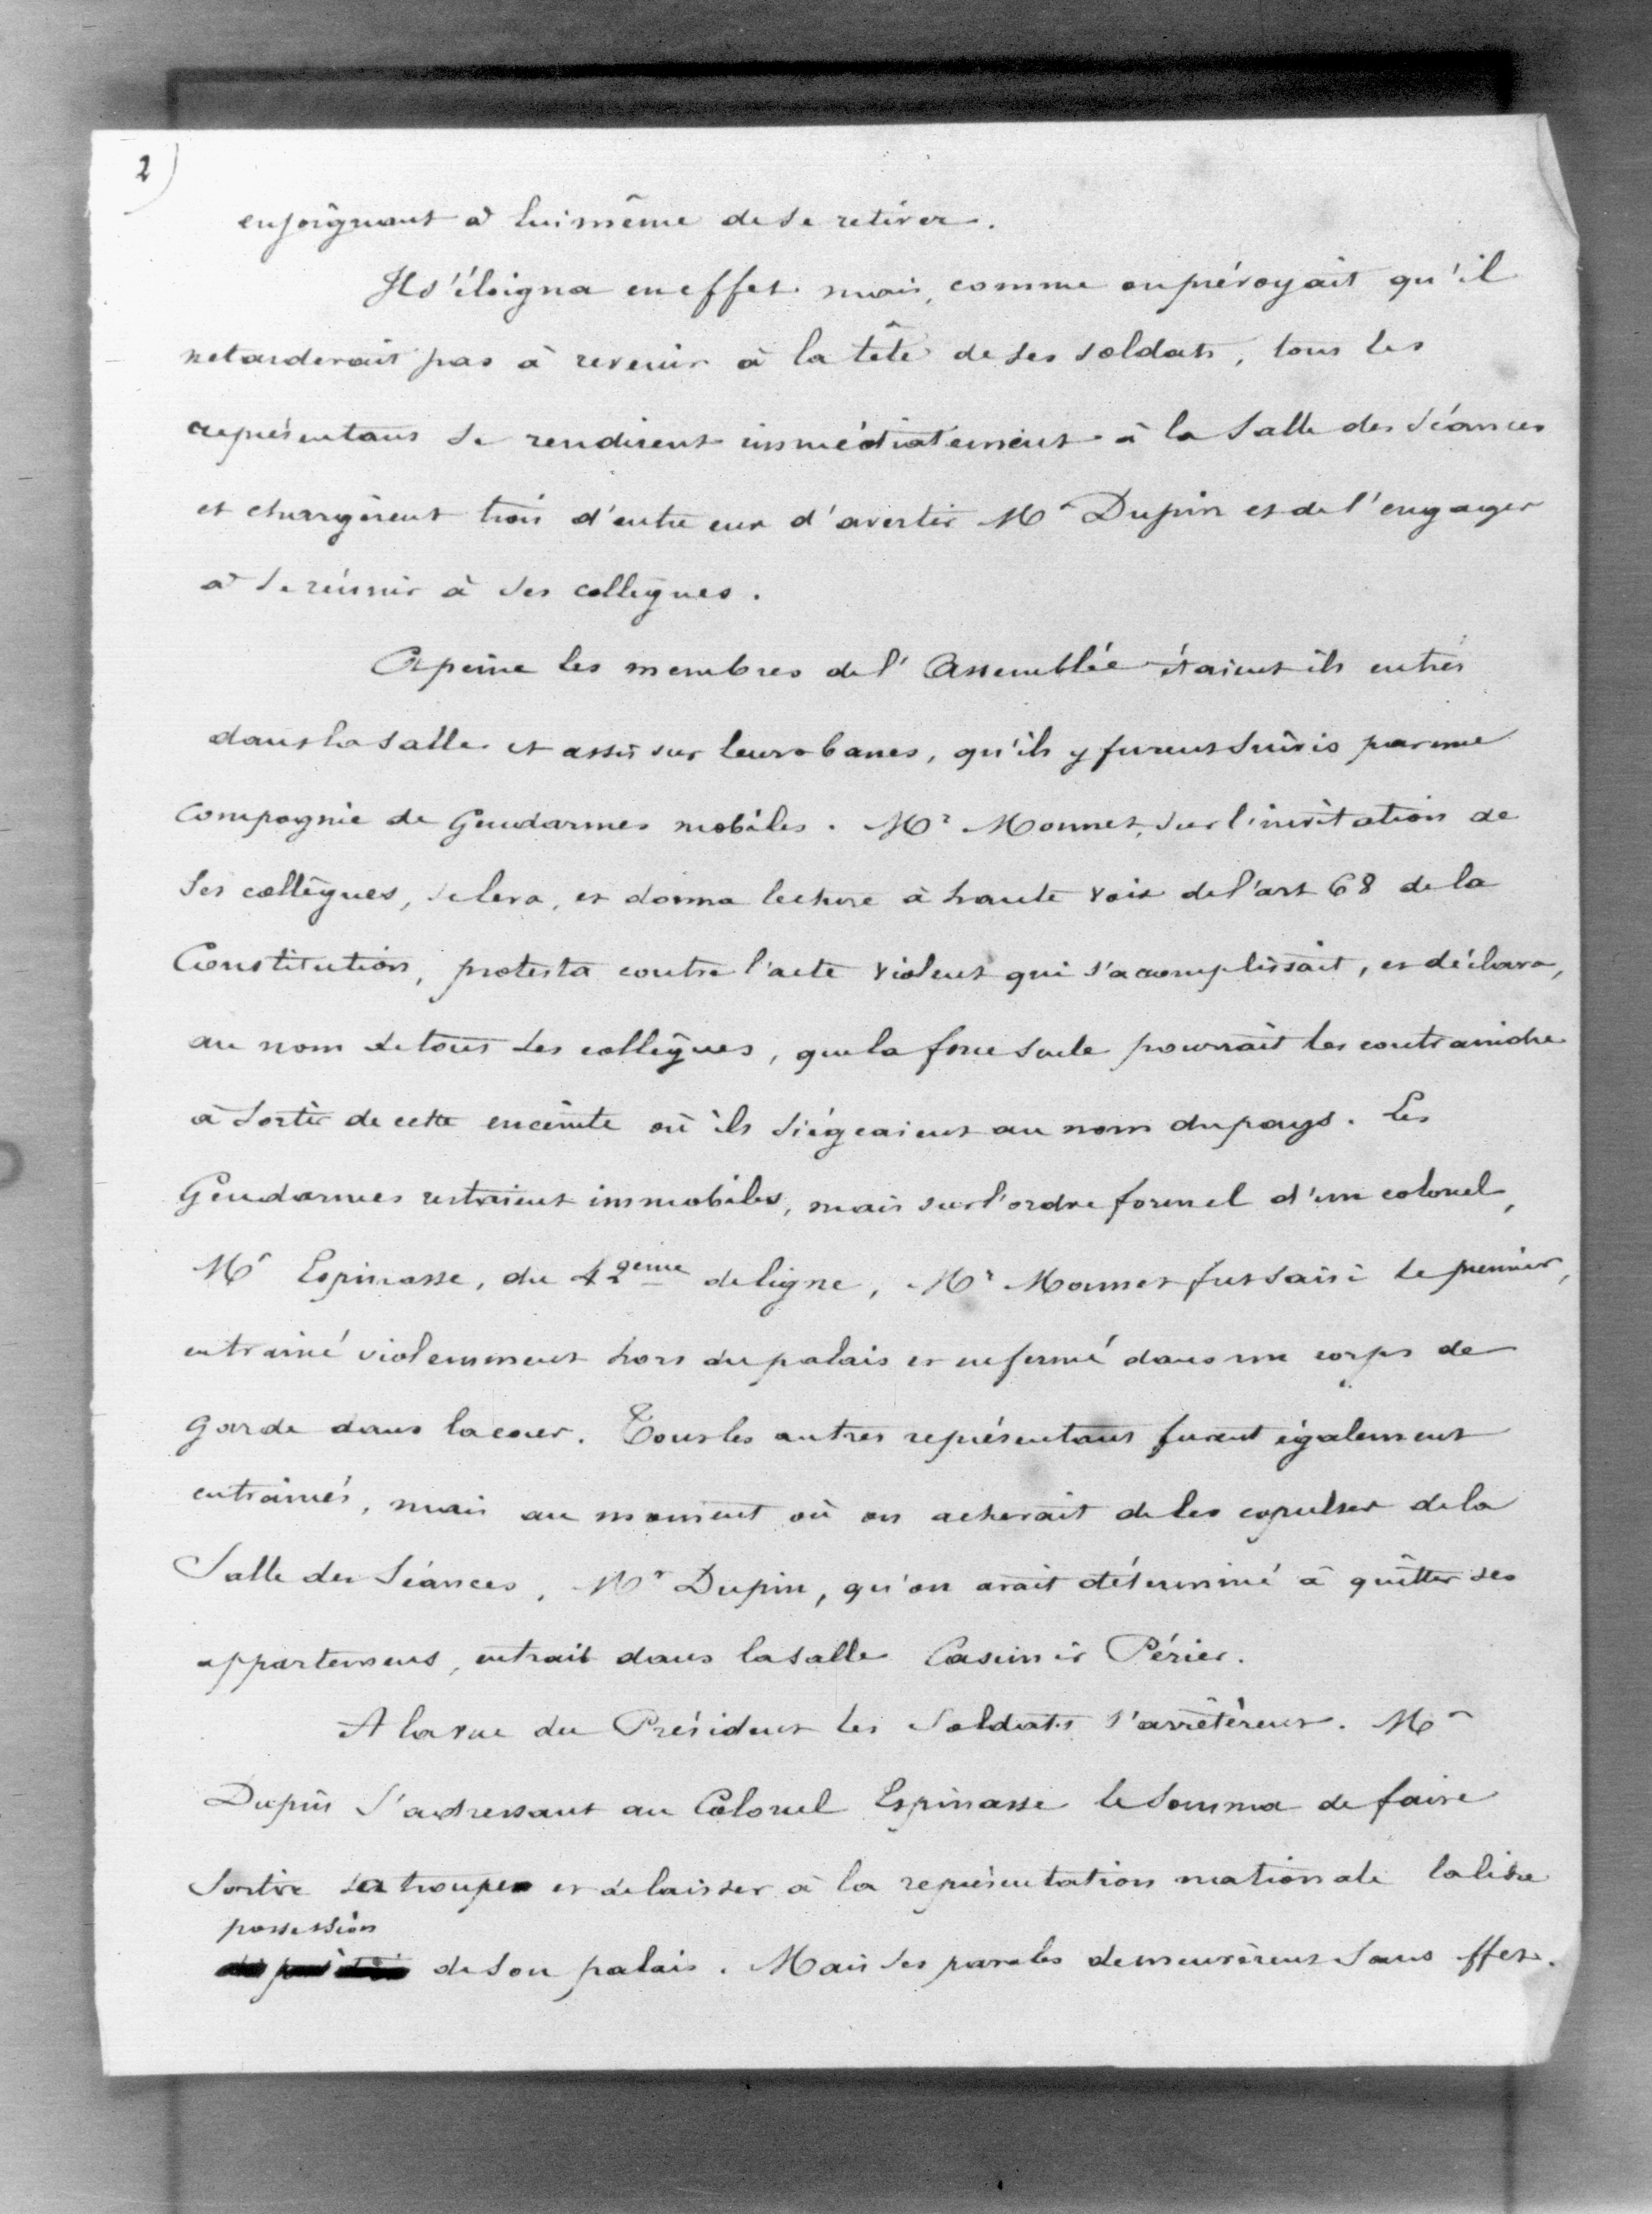 2)
enjoignant à lui même de se retirer.
Il s'éloigna en effet mais, comme on prévoyait qu'il
ne tarderait pas à revenir à la tête de ses soldats, tous les
représentans se rendirent immédiatement à la Salle des Séances
et chargèrent trois d'entre eux d'avertir Mr Dupin et de l'engager
à se réunir à ses collègues.
A peine les membres de l'Assemblée étaient ils entrés
dans la salle et assis sur leurs bancs, qu'ils y furent suivis par une
compagnie de Gendarmes mobiles. Mr Monnet, sur l'invitation de
ses collègues, se leva, et donna lecture à haute voix de l'art 68 de la
Constitution, protesta contre l'acte violent qui s'acomplissait, et déclara,
au nom de tous ses collègues, que la force seule pourrait les contraindre
à sortir de cette enceinte où ils siégeaient au nom du pays. Les
Gendarmes restaient immobiles, mais sur l'ordre formel d'un colonel,
Mr Espinasse, du 42eme de ligne, Mr Monnet fut saisi le premier,
entrainé violemment hors du palais et enfermé dans un corps de
garde dans la cour. Tous les autres représentans furent également
entrainés, mais au moment où on achevait de les expulser de la
Salle des Séances, Mr Dupin, qu'on avait déterminé à quitter ses
appartemens, entrait dans la salle Casimir Périer.
A la vue du Président les Soldats s'arrêtèrent. Mr
Dupin s'adressant au Colonel Espinasse le somma de faire
sortir sa troupe et de laisser à la représentation nationale la libre
possession
de son palais. Mais ses paroles demeurèrent sans effet.